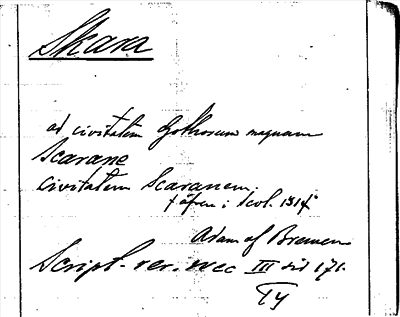 Skara
ad civitatem Gothorum magnam
Scarane
Civitatem Scaranem.
även i Scol. 131
Adam af Bremen
Script. rer. svec III sid 171.
Ty